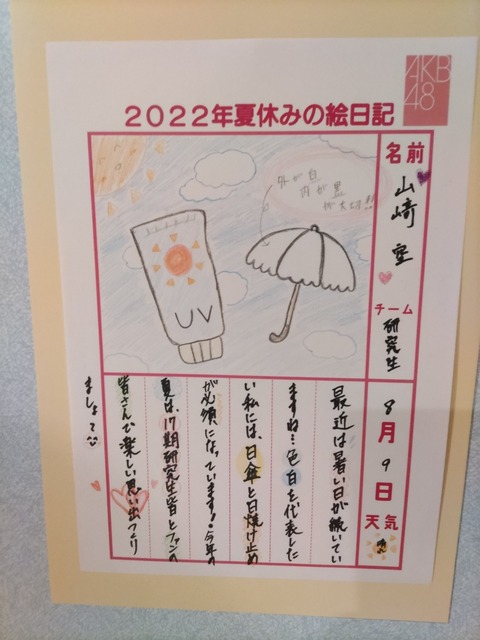 AKB
48
2022年夏休みの絵日記
名前
山﨑 空
チーム
研究生
8月9日
天気
外が白
内が黒
が大切!!
UV
最近は暑い日が続いてい
ますね…色白を代表した
い私には、日傘と日焼け止め
が必須になっています!今年の
夏は、17期研究生皆とファンの
皆さんで楽しい思い出つくり
ましょ〜